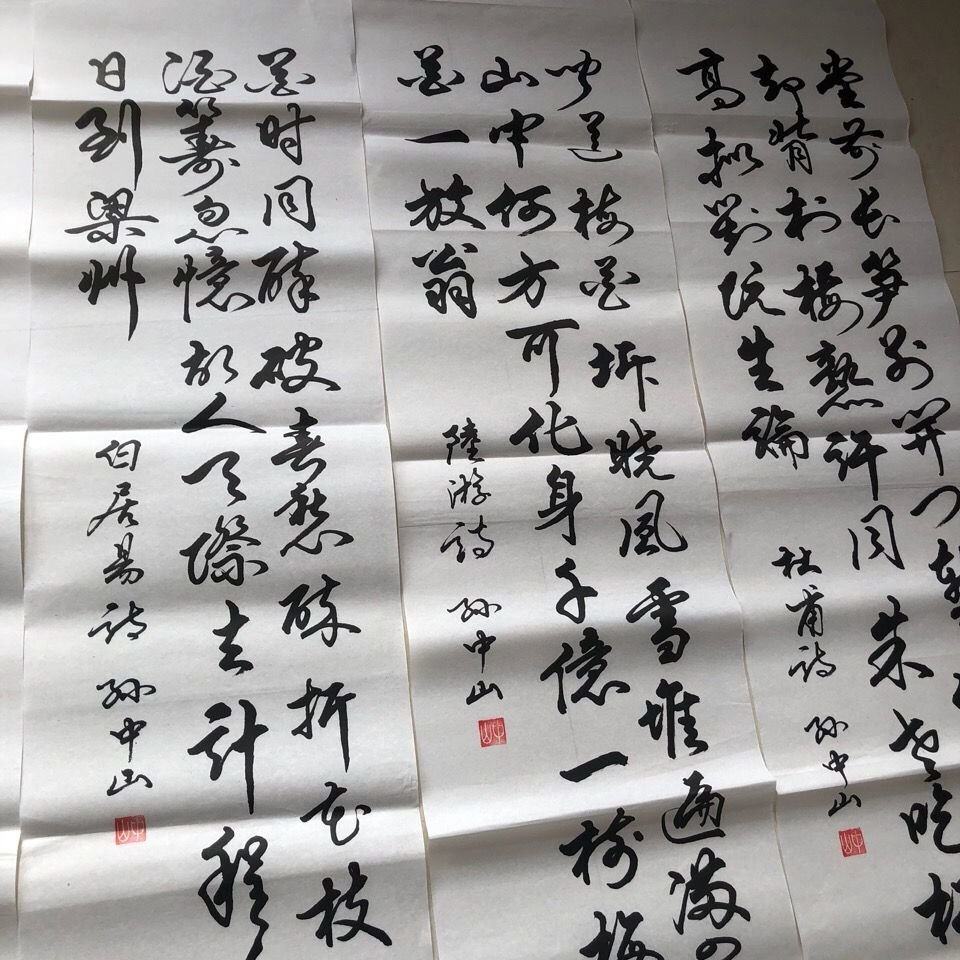 堂前长笋别開门
却背村梅熟許同朱老吃松
高拟對阮生論
杜甫詩 孙中山
闻道梅花坼晓風雪堆遍满四
山中何方可化身千億一樹梅
花一放翁
陸游詩 孙中山
花时同醉破春愁醉折花枝
酒籌忽憶故人天際去計程
日到梁州
伯居易詩 孙中山